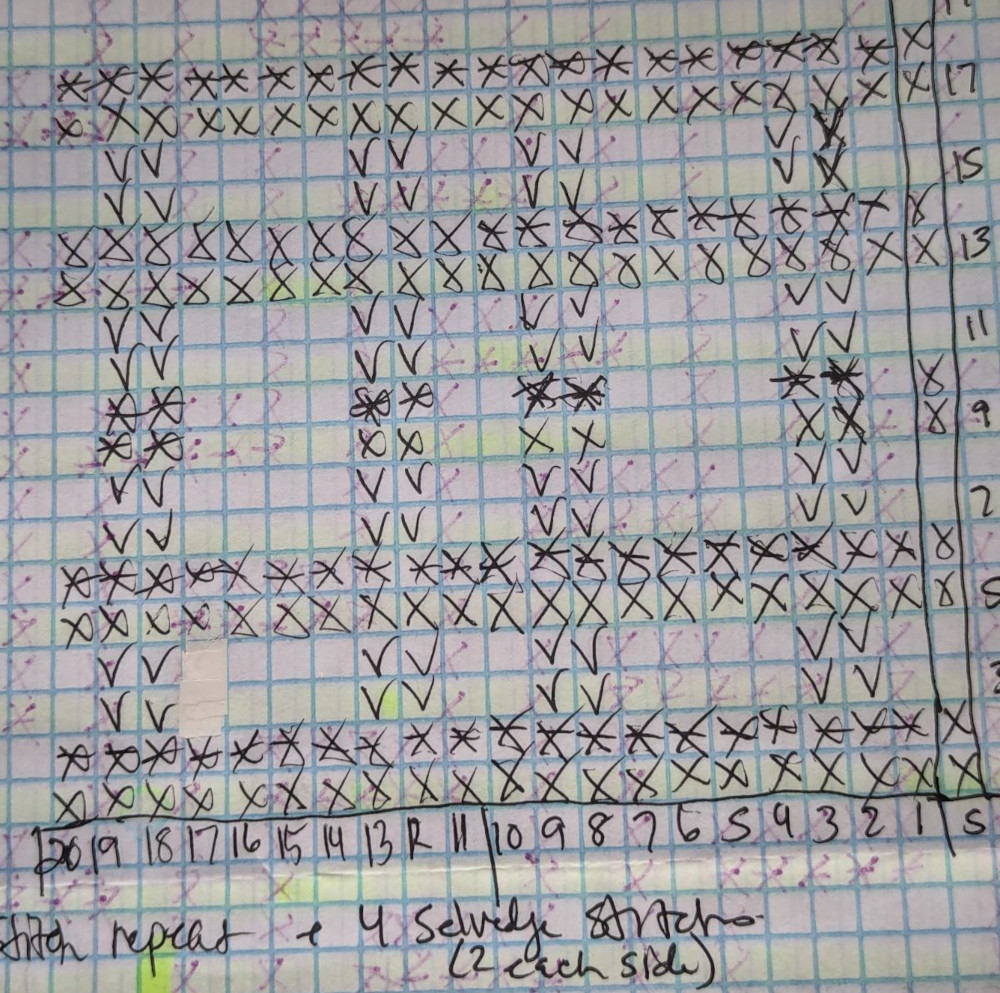 17
15
13
11
9
7
5
3
20 19 18 17 16 15 14 13 12 11 10 9 8 7 6 5 4 3 2 1 S
stitch repeat + 4 Selvedge stitches
(2 each side)